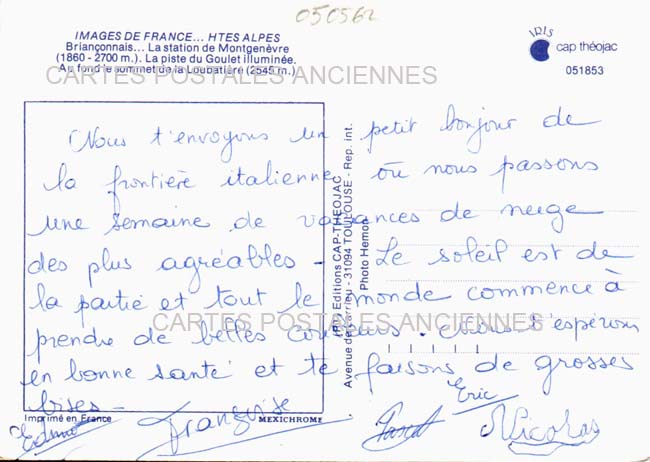 050562
IMAGES DE FRANCE... HTES ALPES
Briançonnais... La station de Montgenèvre
(1860 - 2700 m.). La piste du Goulet illuminée.
Au fond le sommet de la Loubatière (2545 m.)
IRIS
cap théojac
051853
CARTES POSTALES ANCIENNES
Nous t'envoyons un petit bonjour de
la frontière italienne où nous passons
une semaine de vacances de neige
des plus agréables - Le soleil est de
la partie et tout le monde commence à
prendre de belles couleurs. Nous t'espérons
en bonne santé et te faisons de grosses
bises -
CARTES POSTALES ANCIENNES
Editions CAP-THEOJAC
31094 TOULOUSE - Rep. int.
Photo Hemon
Imprimé en France
MEXICHROME
Françoise
Pascal
Eric
Nicolas